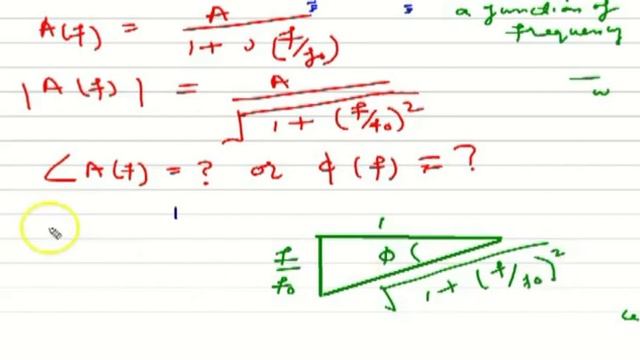 A(f) = A / 1 + j (f/f0)
a function of frequency
|A(f)| = A / √1 + (f/f0)²
w
∠A(f) = ? or ϕ(f) = ?
1
f/f0
ϕ
√1 + (f/f0)²